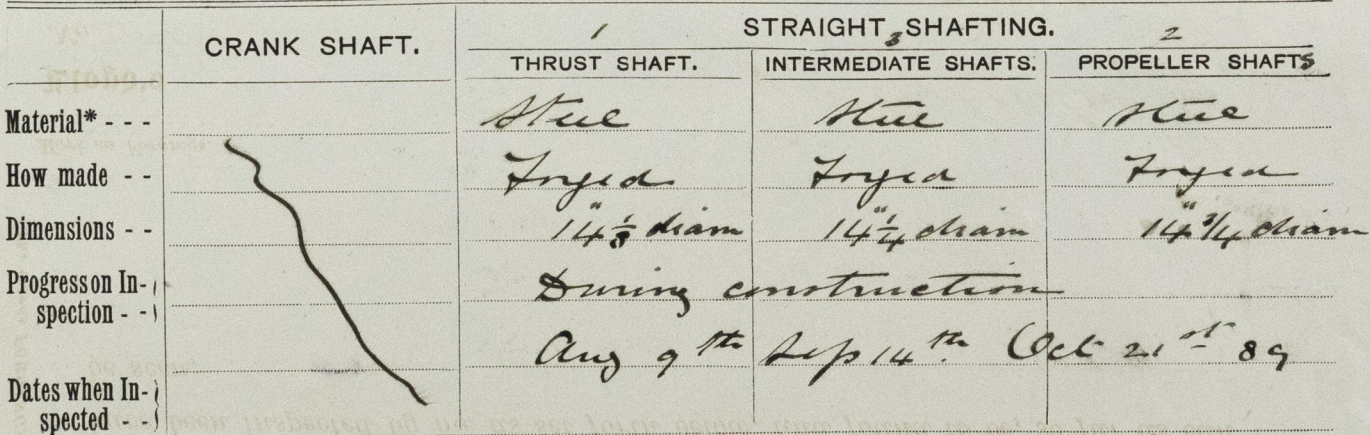 CRANK SHAFT.
STRAIGHT SHAFTING.
1 3 2
THRUST SHAFT. INTERMEDIATE SHAFTS. PROPELLER SHAFTS
Material* - - - Steel Steel Steel
How made - - Forged Forged Forged
Dimensions - - 14"1/8 diam 14"1/4 diam 14"3/4 diam
Progress on In-
spection - - During construction
Aug 9th Sep 14th Oct 21st 89
Dates when In-
spected - -